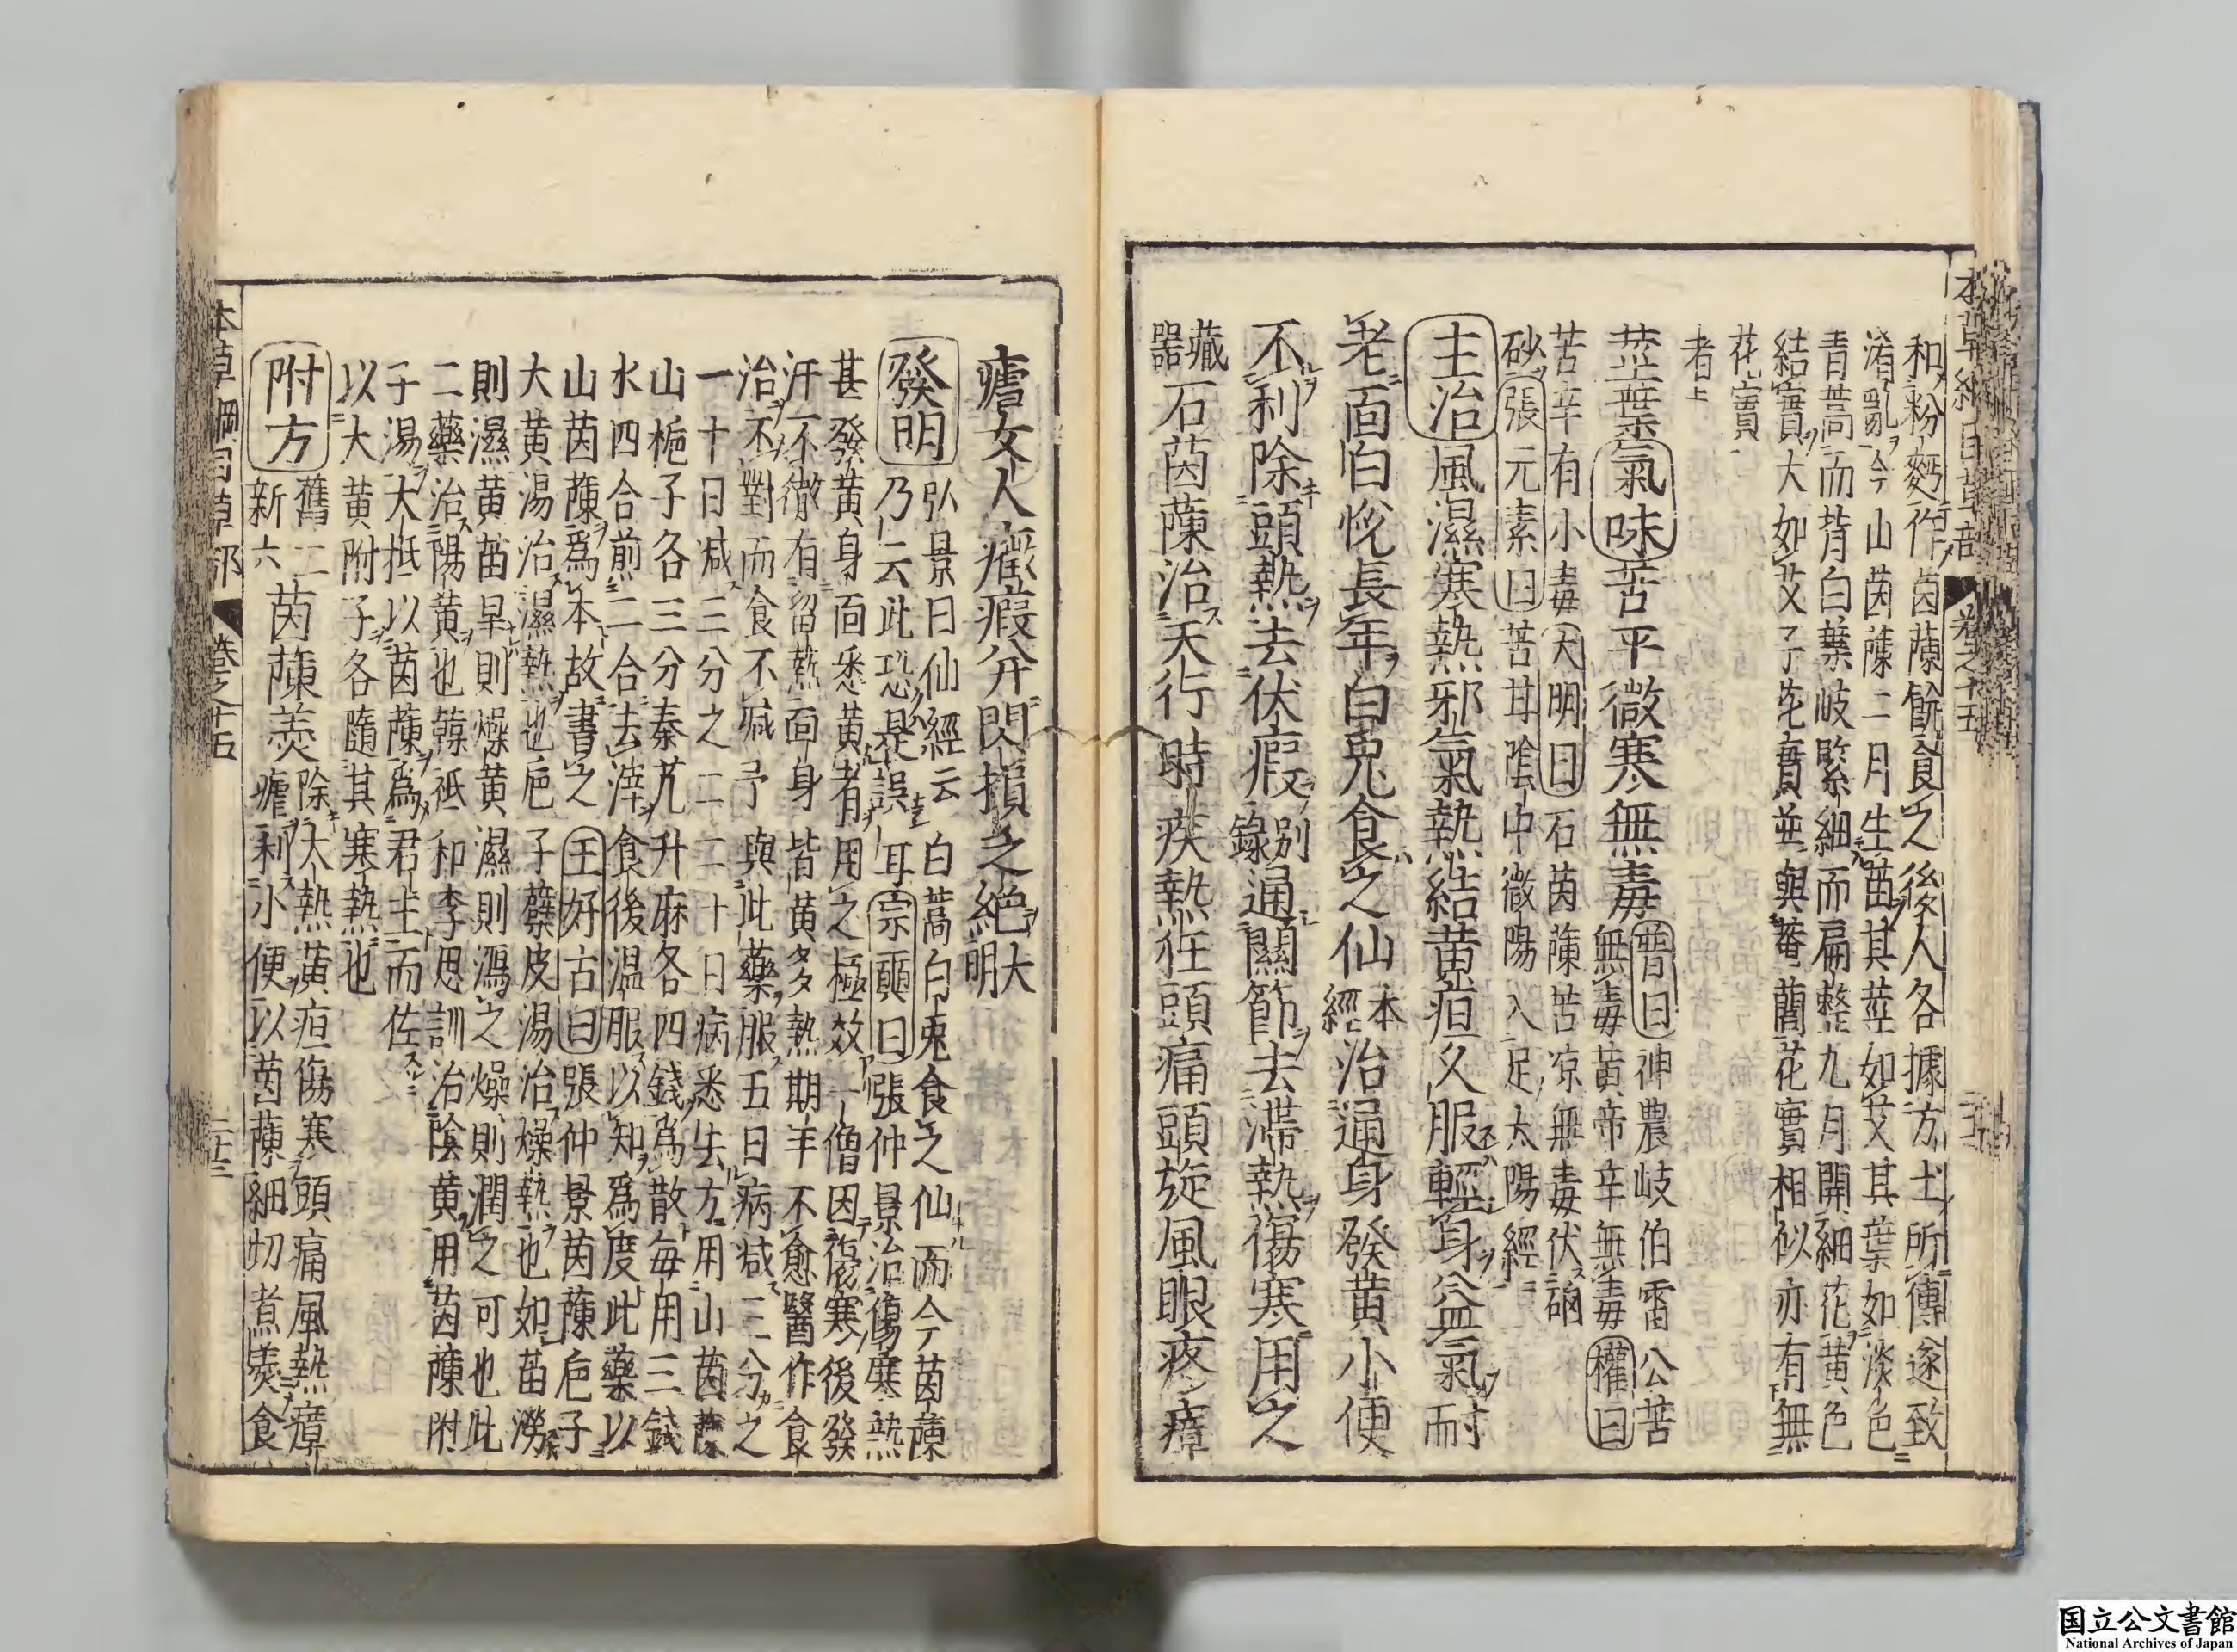 本草綱目草部 卷之十五
和粉麪作茵蔯餻食之後人各據方土所傳遂致
淆亂今山茵蔯二月生苗其莖如艾其葉如淡色
青蒿而背白葉岐緊細而扁整九月開細花黃色
結實大如艾子花實並與菴䕡花實相似亦有無
花實
者上
莖葉氣味苦平微寒無毒普曰神農岐伯雷公苦
無毒黃帝辛無毒權曰
苦辛有小毒大明曰石茵蔯苦凉無毒伏硇
砂張元素曰苦甘陰中微陽入足太陽經
主治風濕寒熱邪氣熱結黃疸久服輕身益氣耐
老面白悅長年白兎食之仙本經治通身發黃小便
不利除頭熱去伏瘕別錄通關節去滯熱傷寒用之
藏器石茵蔯治天行時疾熱狂頭痛頭旋風眼疼瘴
瘧女人癥瘕并閃損乏絕大明
發明弘景曰仙經云白蒿白兎食之仙而今茵蔯
乃云此恐是誤耳宗奭曰張仲景治傷寒熱
甚發黃身面悉黃者用之極效一僧因傷寒後發
汗不徹有留熱面身皆黃多熱期年不愈醫作食
治不對而食不減予與此藥服五日病減三分之
一十日減三分之二二十日病悉去方用山茵蔯
山梔子各三分秦艽升麻各四錢爲散每用三錢
水四合煎二合去滓食後温服以知爲度此藥以
山茵蔯爲本故書之王好古曰張仲景茵蔯巵子
大黃湯治濕熱也巵子蘗皮湯治燥熱也如苗澇
則濕黃苗旱則燥黃濕則瀉之燥則潤之可也此
二藥治陽黃也韓祗和李思訓治陰黃用茵蔯附
子湯大抵以茵蔯爲君主而佐
以大黃附子各隨其寒熱也
附方舊二新六茵蔯羹除大熱黃疸傷寒頭痛風熱瘴
瘧利小便以茵蔯細切煮羹食
本草綱目草部 卷之十五